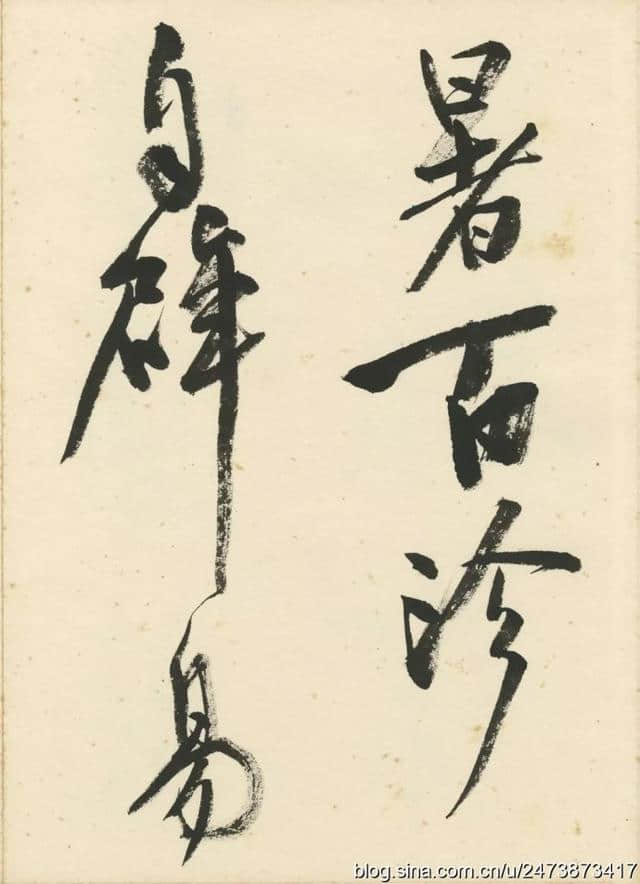 暑百沴
自辟易
blog.sina.com.cn/u/2473873417